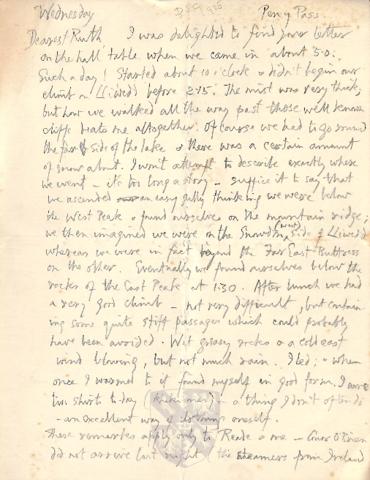 Wednesday Pen y Pass.
Dearest Ruth I was delighted to find your letter
on the hall table when we came in about 5.0.
Such a day! Started about 10 o'clock & didn't begin our
climb on Lliwedd before 2.15. The mist was very thick,
but how we walked all the way past those well known
cliffs beats me altogether. Of course we had to go round
the far side of the lake & there was a certain amount
of snow about. I won't attempt to describe exactly where
we went – its too long a story – suffice it to say that
we ascended an easy gully thinking we were below
the West Peak & found ourselves on the mountain ridge;
we then imagined we were on the Snowdon side of Lliwedd
whereas we were in fact beyond the Far East Buttress
on the other. Eventually we found ourselves below the
rocks of the East Peak at 1.30. After lunch we had
a very good climb – not very difficult, but contain-
ing some quite stiff passages which could probably
have been avoided. Wet greasy rocks & a cold east
wind blowing, but not much rain. I led; & when
once I warmed to it found myself in good form. I wore
two shirts to-day – a thing I don't often do
– an excellent way of clothing oneself.
These remarks apply only to Reade & me – Conor O'Brien
did not arrive last night the steamers from Ireland